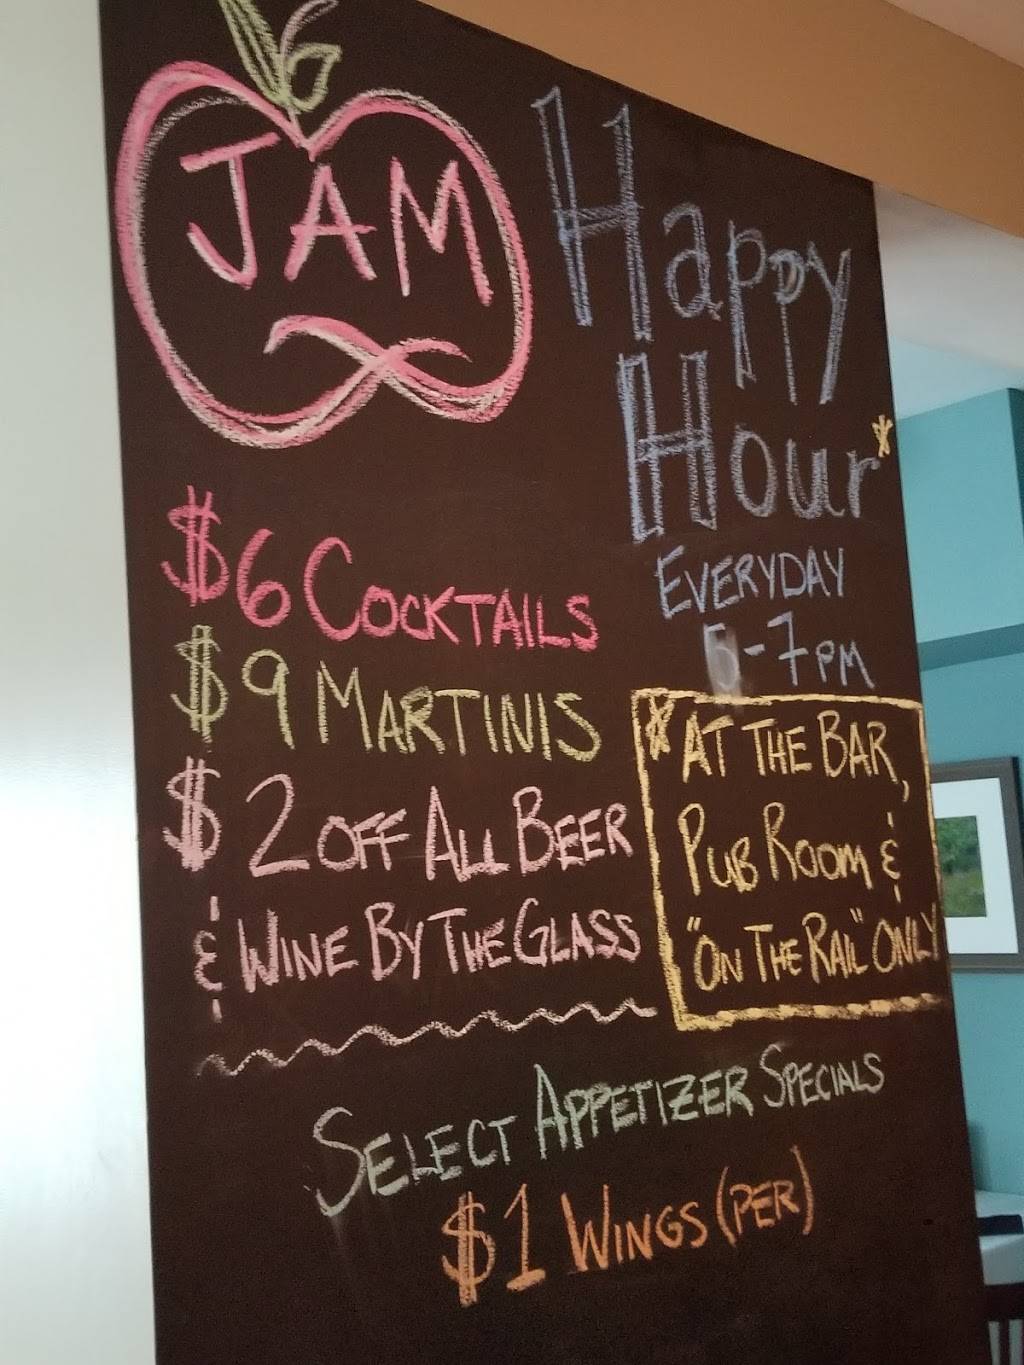 JAM
Happy
Hour*
EVERYDAY
5-7PM
* AT THE BAR,
PUB ROOM &
"ON THE RAIL" ONLY
$6 COCKTAILS
$9 MARTINIS
$2 OFF ALL BEER
& WINE BY THE GLASS
SELECT APPETIZER SPECIALS
$1 WINGS (PER)